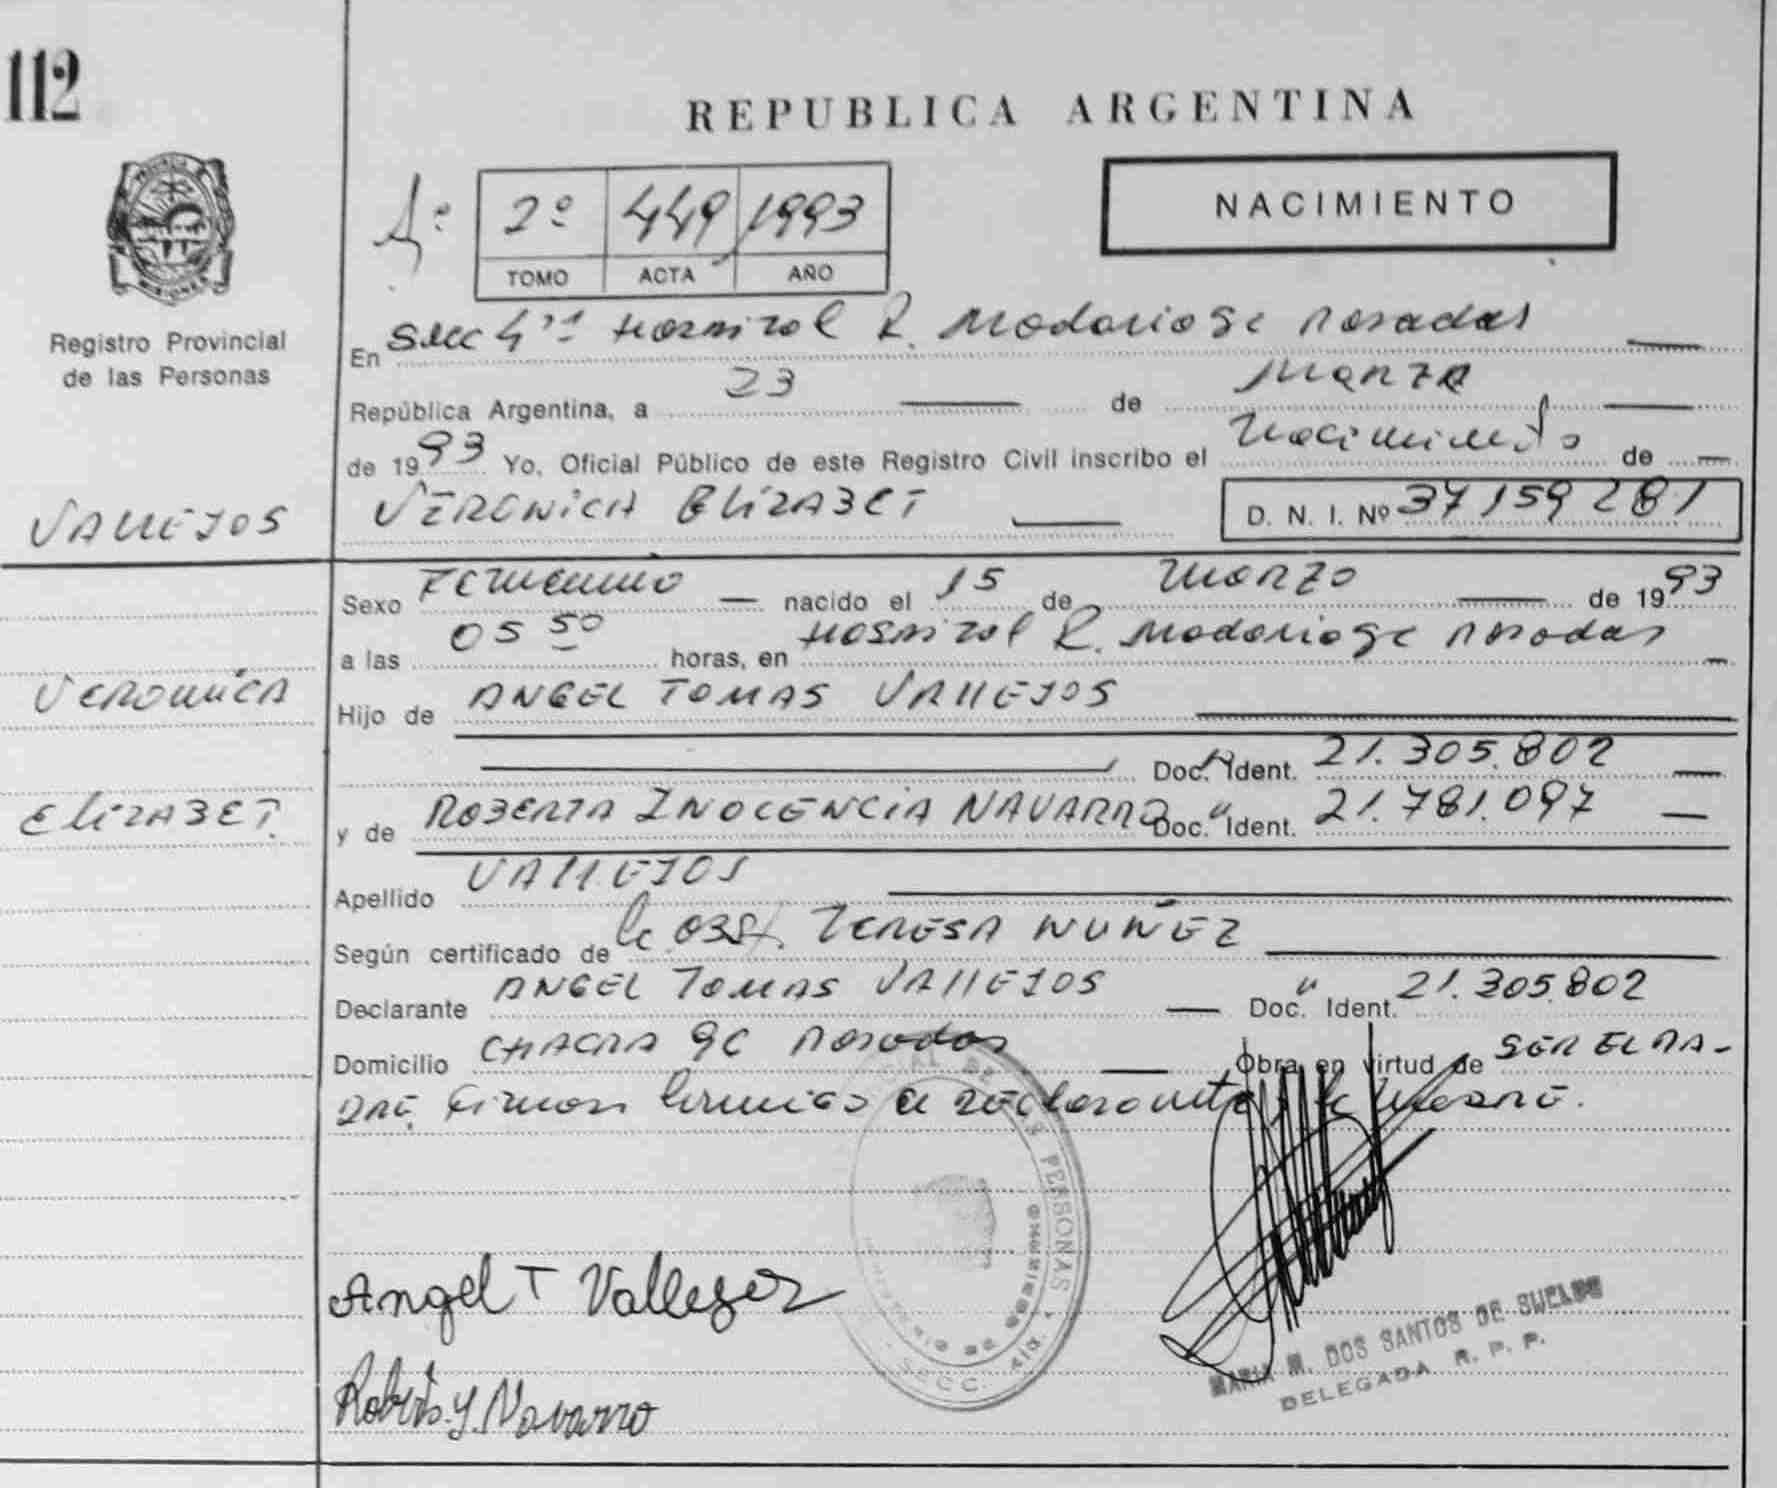 112
REPUBLICA ARGENTINA
4º 2º 449 1993
TOMO ACTA AÑO
NACIMIENTO
PROVINCIA DE MISIONES
Registro Provincial
de las Personas
En Secc 4ta Hospital R. Madariaga Posadas
República Argentina, a 23 de Marzo
de 1993 Yo, Oficial Público de este Registro Civil inscribo el Nacimiento de
VALLEJOS VERONICA ELIZABET D. N. I. Nº 37159281
Sexo Femenino nacido el 15 de Marzo de 1993
a las 05 50 horas, en Hospital R. Madariaga Posadas
VERONICA
Hijo de ANGEL TOMAS VALLEJOS
Doc. Ident. 21.305.802
ELIZABET.
y de ROBERTA INOCENCIA NAVARRO Doc. Ident. 21.781.097
Apellido VALLEJOS
Según certificado de la Obst. TERESA NUÑEZ
Declarante ANGEL TOMAS VALLEJOS Doc. Ident. 21.305.802
Domicilio CHACRA 96 Posadas Obra en virtud de SER EL PA-
DRE. Firman conmigo el declarante y la madre.
DE LAS PERSONAS
SECC. 4ta.
Angel T Vallejos
MARIA M. DOS SANTOS DE SUELDO
DELEGADA R. P. P.
Roberta Y. Navarro